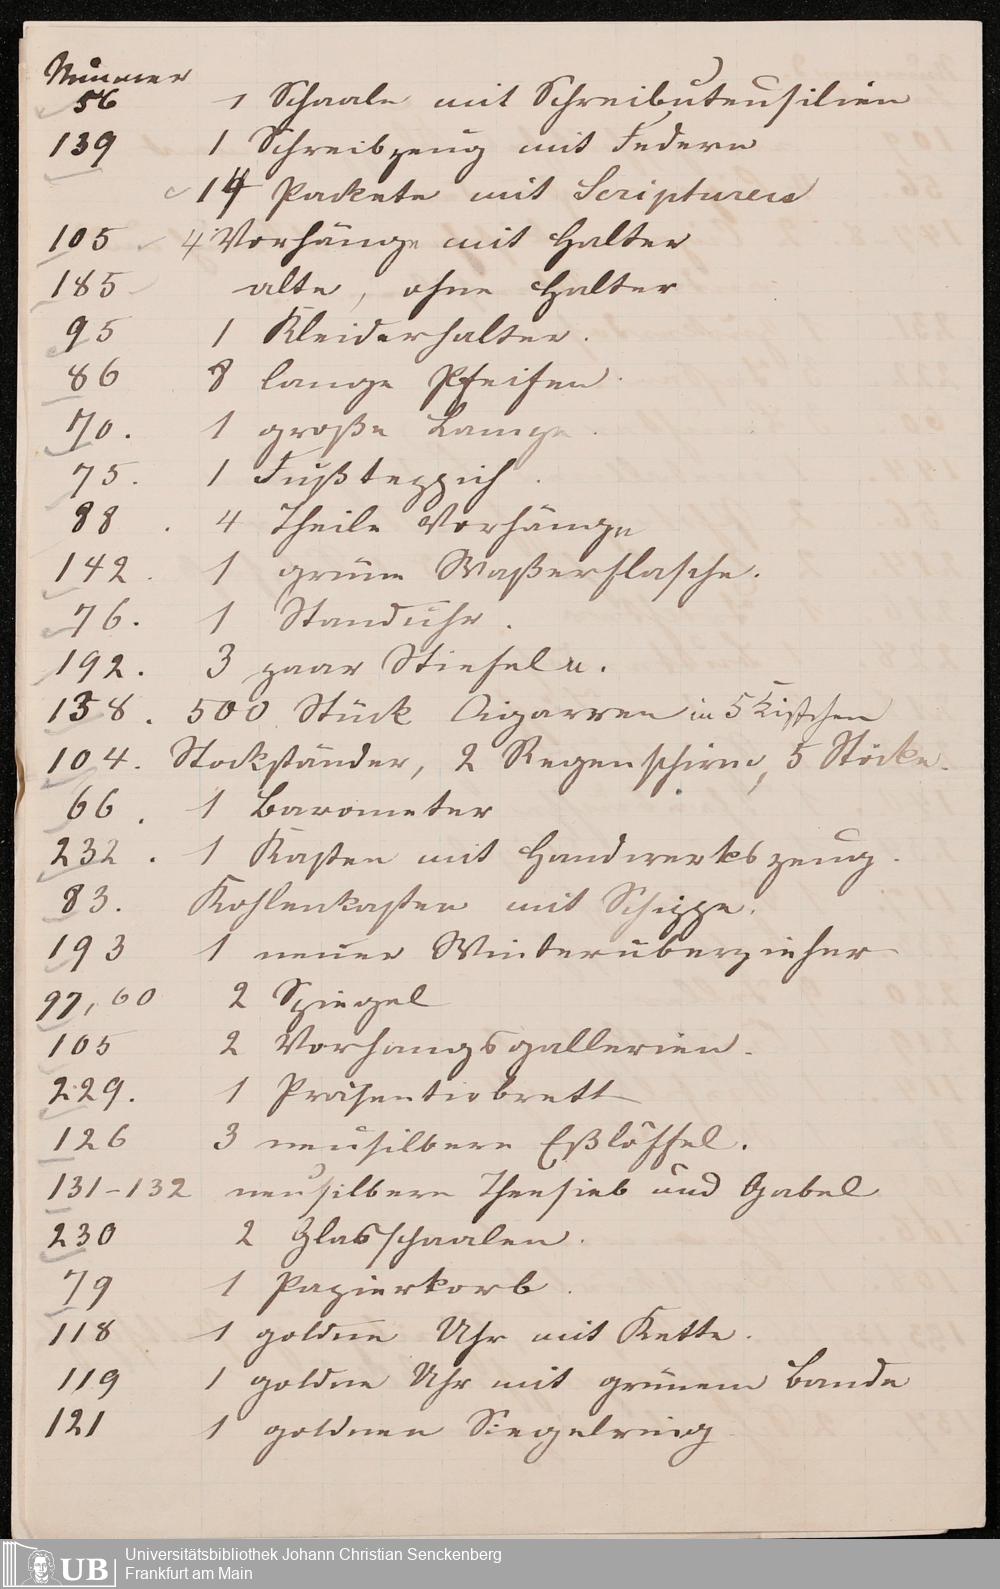 Nummer
56 1 Schaale mit Schreibutensilien
139 1 Schreibzeug mit Federn
14 Packete mit Scripturen
105 4 Vorhänge mit Halter
185 alte, ohne Halter
95 1 Kleiderhalter.
86 8 lange Pfeifen.
70. 1 große Lampe.
75. 1 Fußteppich.
88. 4 Theile Vorhänge
142. 1 grüne Waßerflasche.
76. 1 Standuhr.
192. 3 paar Stiefeln.
138. 500 Stück Cigarren in 5 Kistchen
104. Stockständer, 2 Regenschirme, 5 Stöcke.
66. 1 Barometer
232. 1 Kasten mit Handwerkszeug.
83. Kohlenkasten mit Schippe.
193 1 neuer Winterüberzieher
97, 60 2 Spiegel
105 2 Vorhangsgallerien.
229. 1 Präsentirbrett
126 3 neusilberne Eßlöffel.
131-132 neusilbern Theesieb und Gabel
230 2 Glasschaalen.
79 1 Papierkorb.
118 1 goldne Uhr mit Kette.
119 1 goldne Uhr mit grünem Bande
121 1 goldnen Siegelring
UB Universitätsbibliothek Johann Christian Senckenberg
Frankfurt am Main